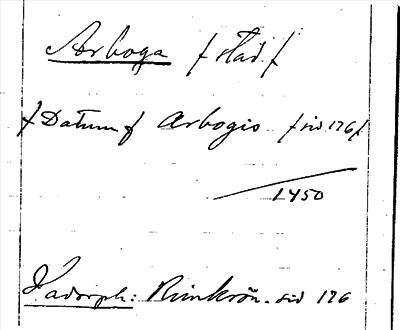 Arboga / stad /
/ Datum / Arbogis / sid 176 /
1450
Hadorph: Rimkrön. sid 176